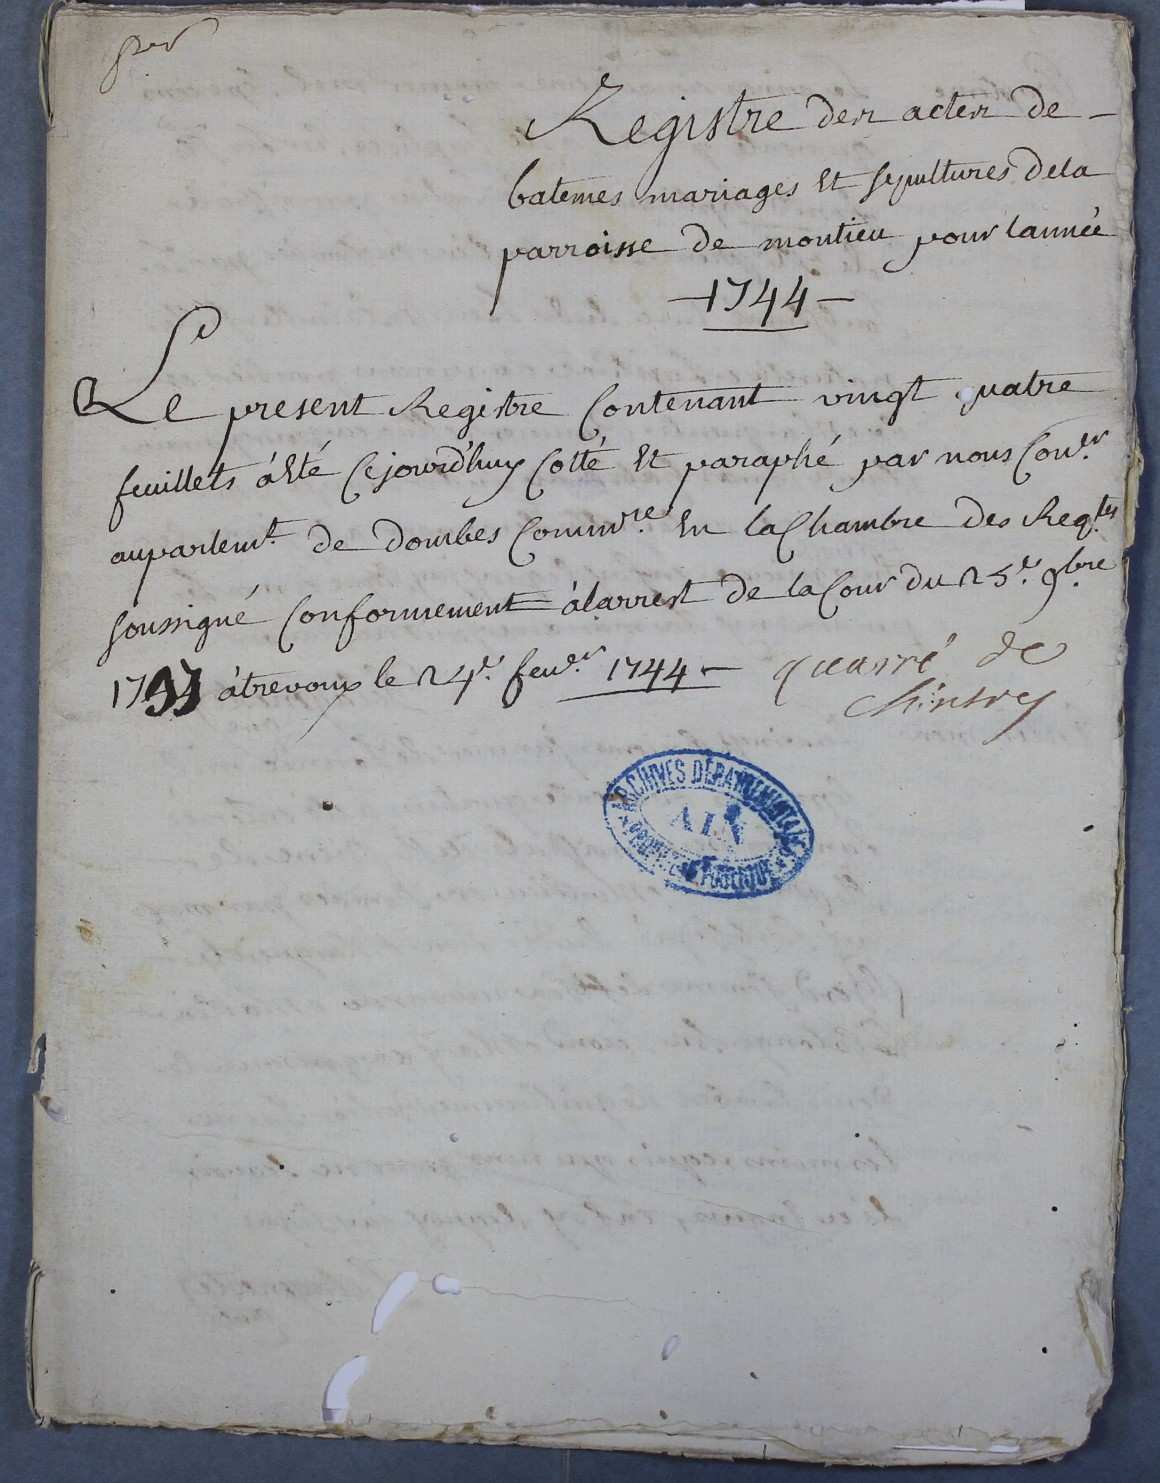 per
Registre des actes de
batemes mariages et sepultures dela
parroisse de montieu pour lannéé
1744
Le present Registre Contenant vingt quatre
feuillets áeté Cejourd'huy Cotté et paraphé par nous Con.er
auparlem.t de dombes Comm.re En laChambre des Reg.tes
soussigné Conformement álarrest de laCour du 25.e 9bre
àtrevoux le 24.e fev.er 1744 quarré de
Chintrey
ARCHIVES DÉPARTEMENTALES
AIN